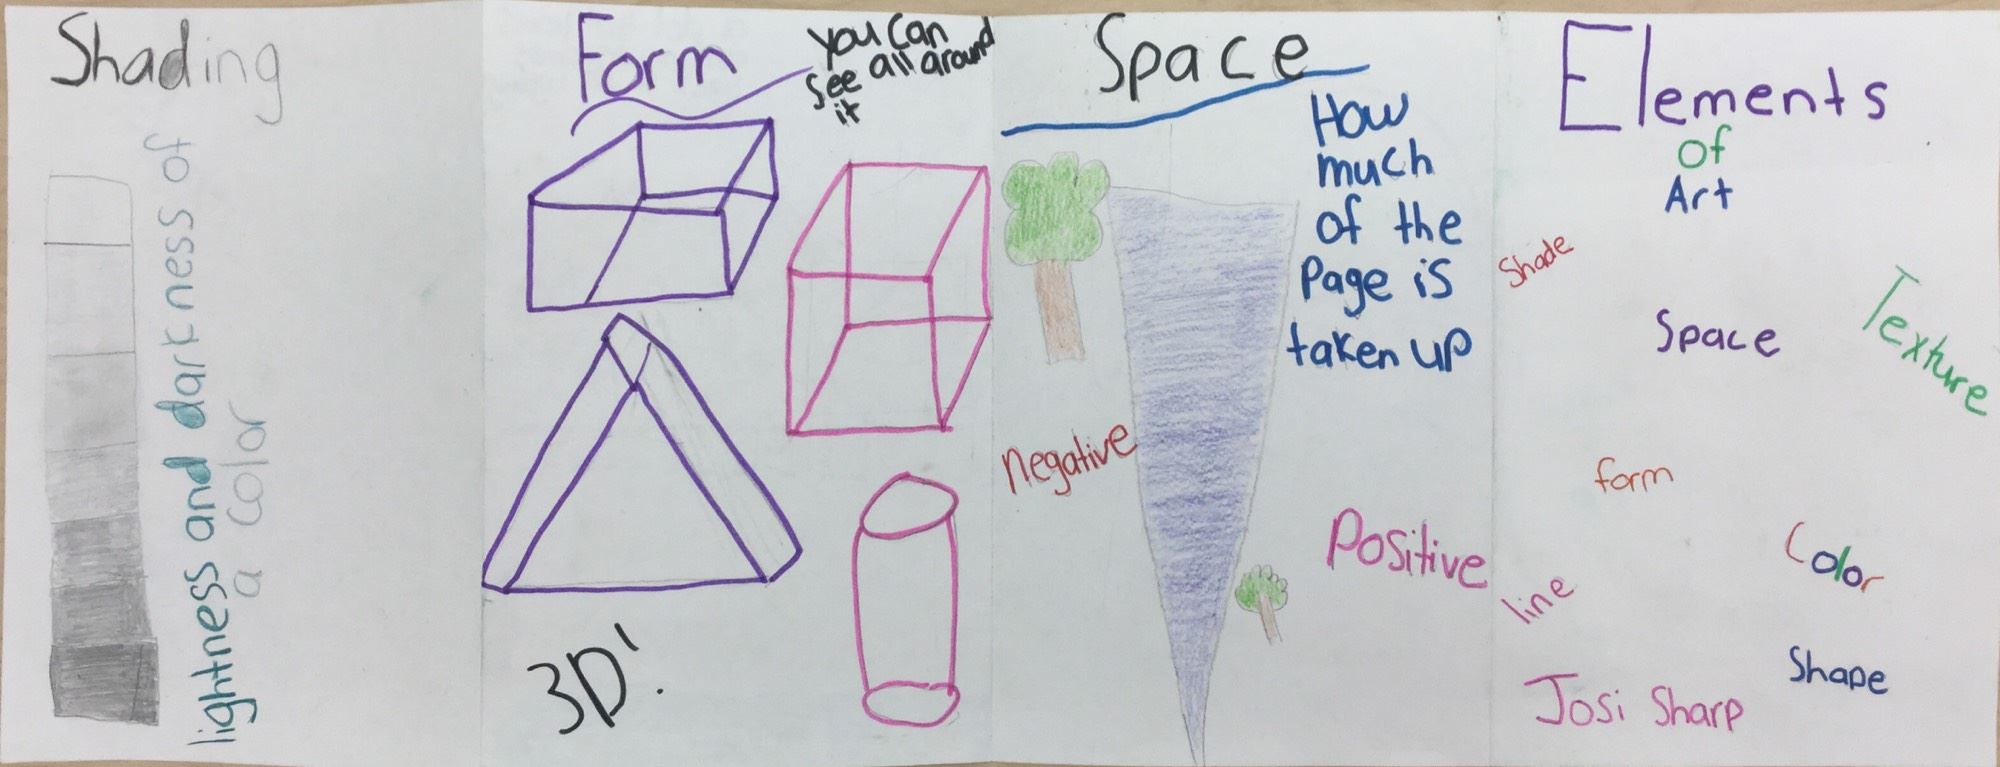 Shading
lightness and darkness of
a color
Form
you can
see all around
it
3D!
Space
How
much
of the
Page is
taken up
negative
Positive
Elements
of
Art
Shade
Texture
Space
form
Color
line
Shape
Josi Sharp